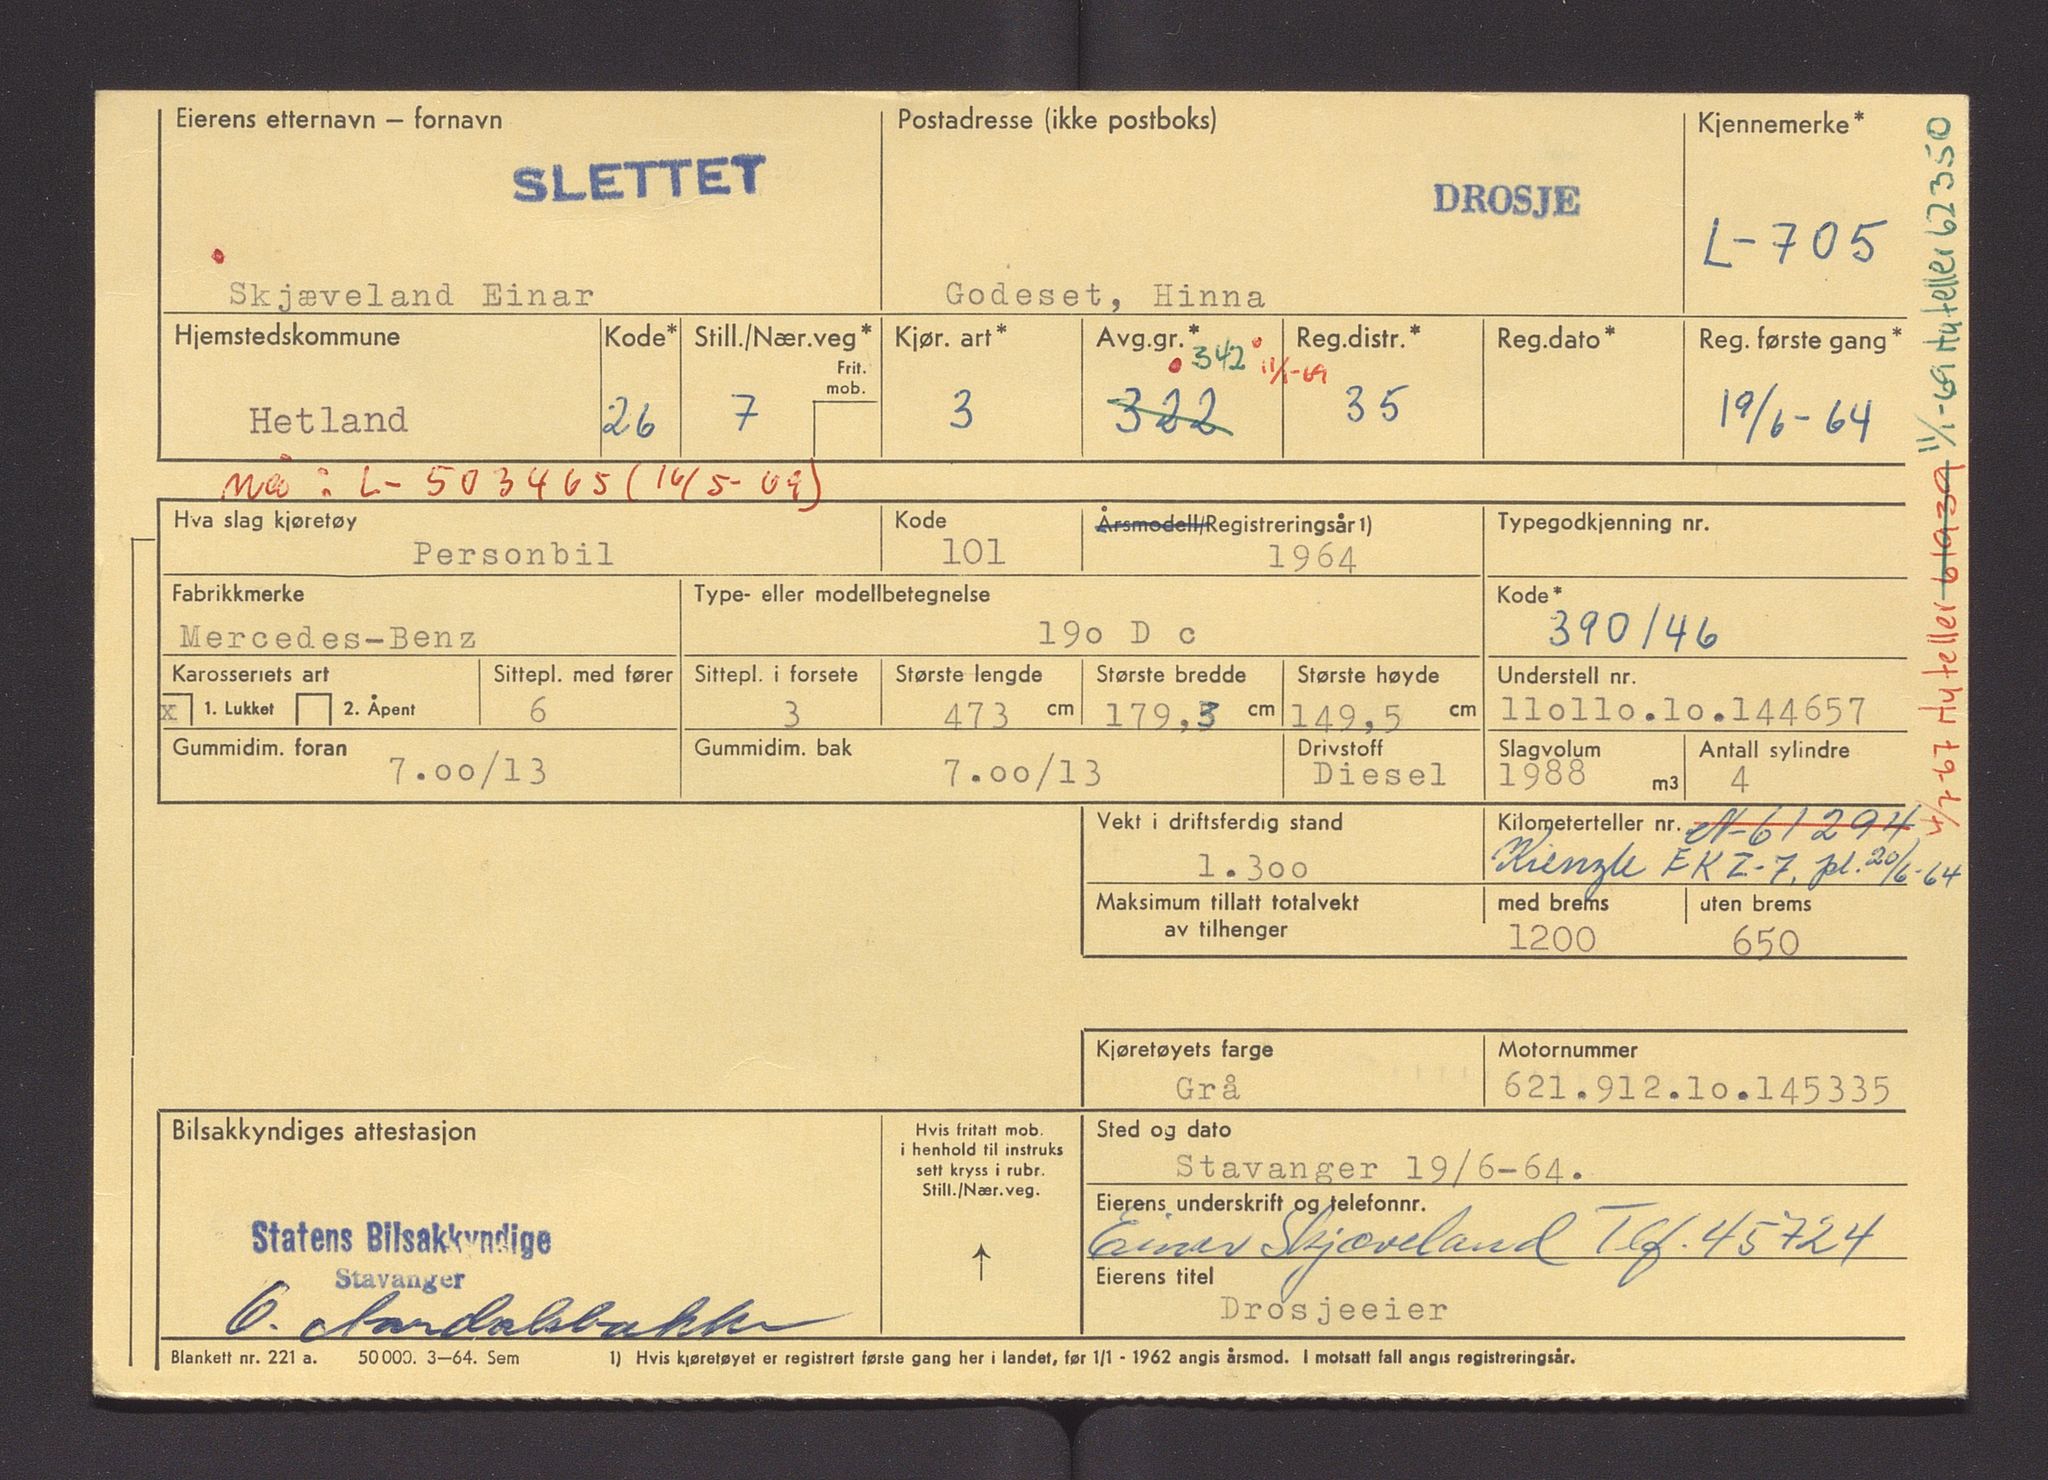 Eierens etternavn – fornavn
Postadresse (ikke postboks)
Kjennemerke*
SLETTET
DROSJE
L-705
Skjæveland Einar
Godeset, Hinna
Hjemstedskommune
Kode*
Still./Nær.veg*
Frit. mob.
Kjør. art*
Avg.gr.*
Reg.distr.*
Reg.dato*
Reg. første gang*
342
11/1-69
Hetland
26
7
3
322
35
19/6-64
Nå: L-503465 (16/5-69)
Hva slag kjøretøy
Kode
Årsmodell/Registreringsår 1)
Typegodkjenning nr.
Personbil
101
1964
Fabrikkmerke
Type- eller modellbetegnelse
Kode*
Mercedes-Benz
19o D c
390/46
Karosseriets art
Sittepl. med fører
Sittepl. i forsete
Største lengde
Største bredde
Største høyde
Understell nr.
x 1. Lukket 2. Åpent
6
3
473 cm
179,3 cm
149,5 cm
11o11o.1o.144657
Gummidim. foran
Gummidim. bak
Drivstoff
Slagvolum
Antall sylindre
7.oo/13
7.oo/13
Diesel
1988 m3
4
Vekt i driftsferdig stand
Kilometerteller nr. N-61294
1.3oo
Kienzle EKZ-7. pl. 20/6-64
Maksimum tillatt totalvekt
av tilhenger
med brems
uten brems
1200
650
Kjøretøyets farge
Motornummer
Grå
621.912.1o.145335
Bilsakkyndiges attestasjon
Hvis fritatt mob.
i henhold til instruks
sett kryss i rubr.
Still./Nær.veg.
Sted og dato
Stavanger 19/6-64.
Eierens underskrift og telefonnr.
Einar Skjæveland Tlf. 45724
Statens Bilsakkyndige
Stavanger
Eierens titel
Drosjeeier
Blankett nr. 221 a. 50 000. 3–64. Sem
1) Hvis kjøretøyet er registrert første gang her i landet, før 1/1 - 1962 angis årsmod. I motsatt fall angis registreringsår.
4/7-67 Ny teller 61939
11/1-69 Ny teller 62350